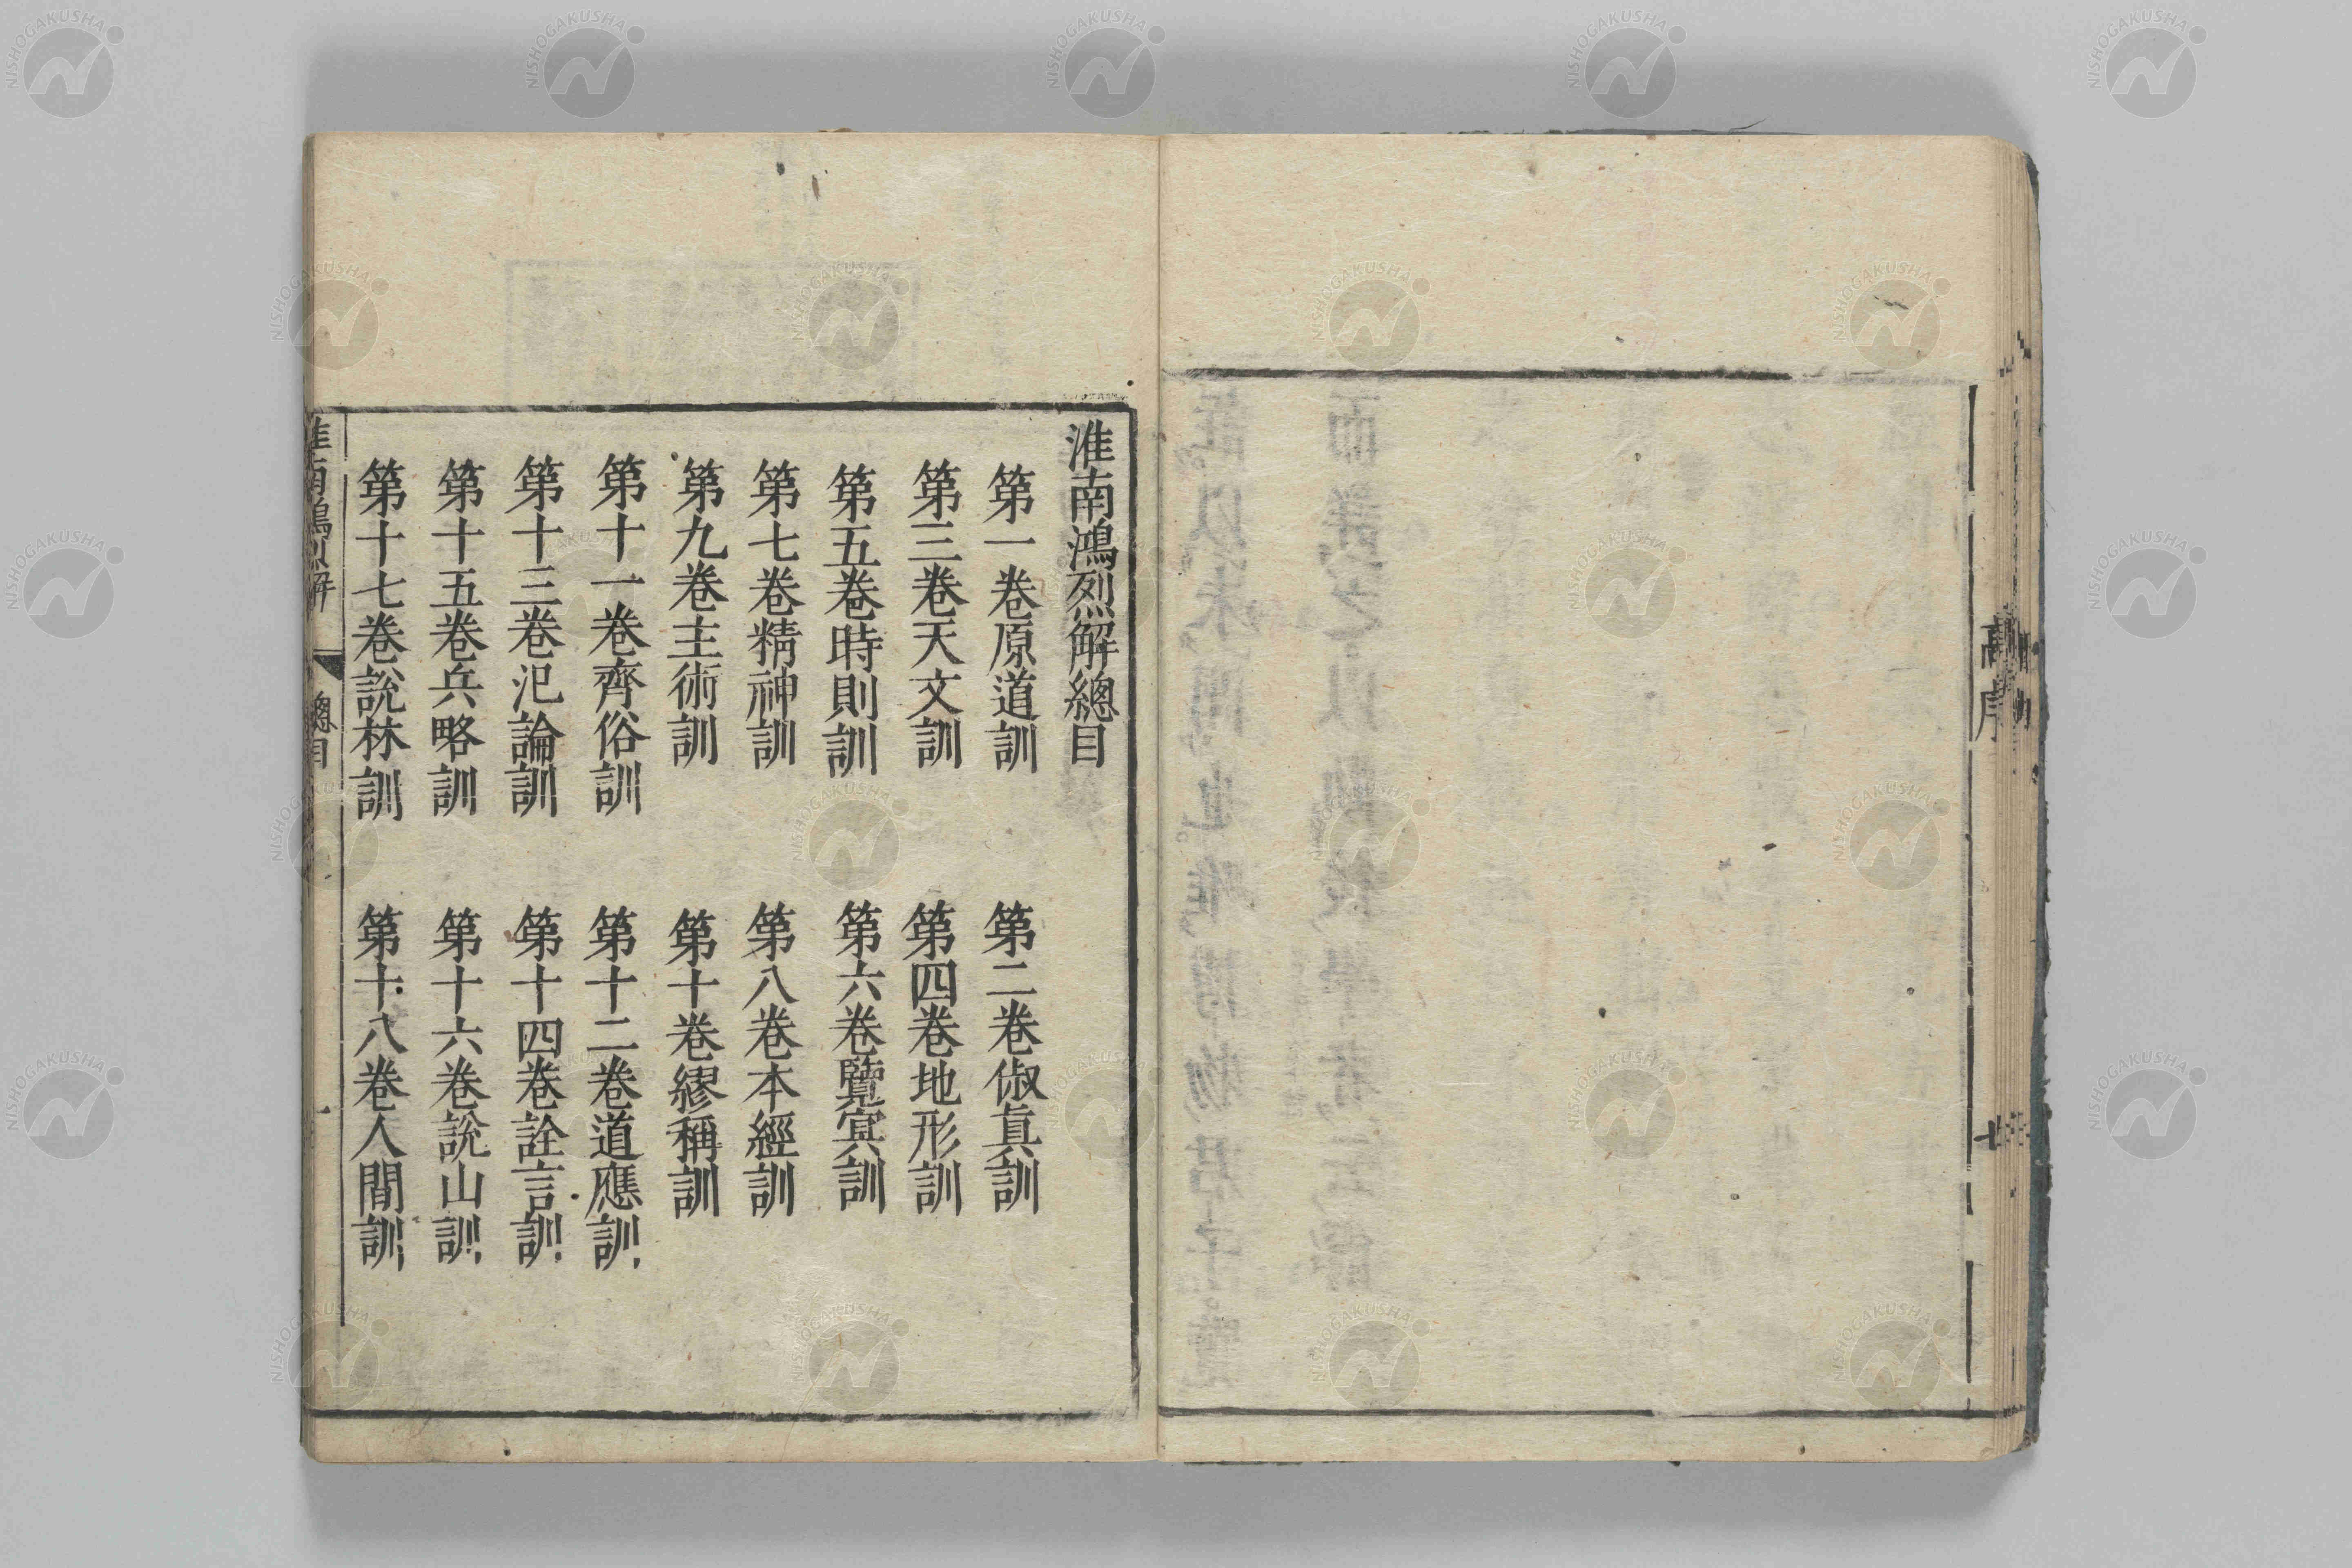 高序
七
淮南鴻烈解總目
第一卷原道訓
第二卷俶眞訓
第三卷天文訓
第四卷地形訓
第五卷時則訓
第六卷覽冥訓
第七卷精神訓
第八卷本經訓
第九卷主術訓
第十卷繆稱訓
第十一卷齊俗訓
第十二卷道應訓
第十三卷氾論訓
第十四卷詮言訓
第十五卷兵略訓
第十六卷說山訓
第十七卷說林訓
第十八卷人間訓
淮南鴻烈解
總目
一
NISHOGAKUSHA